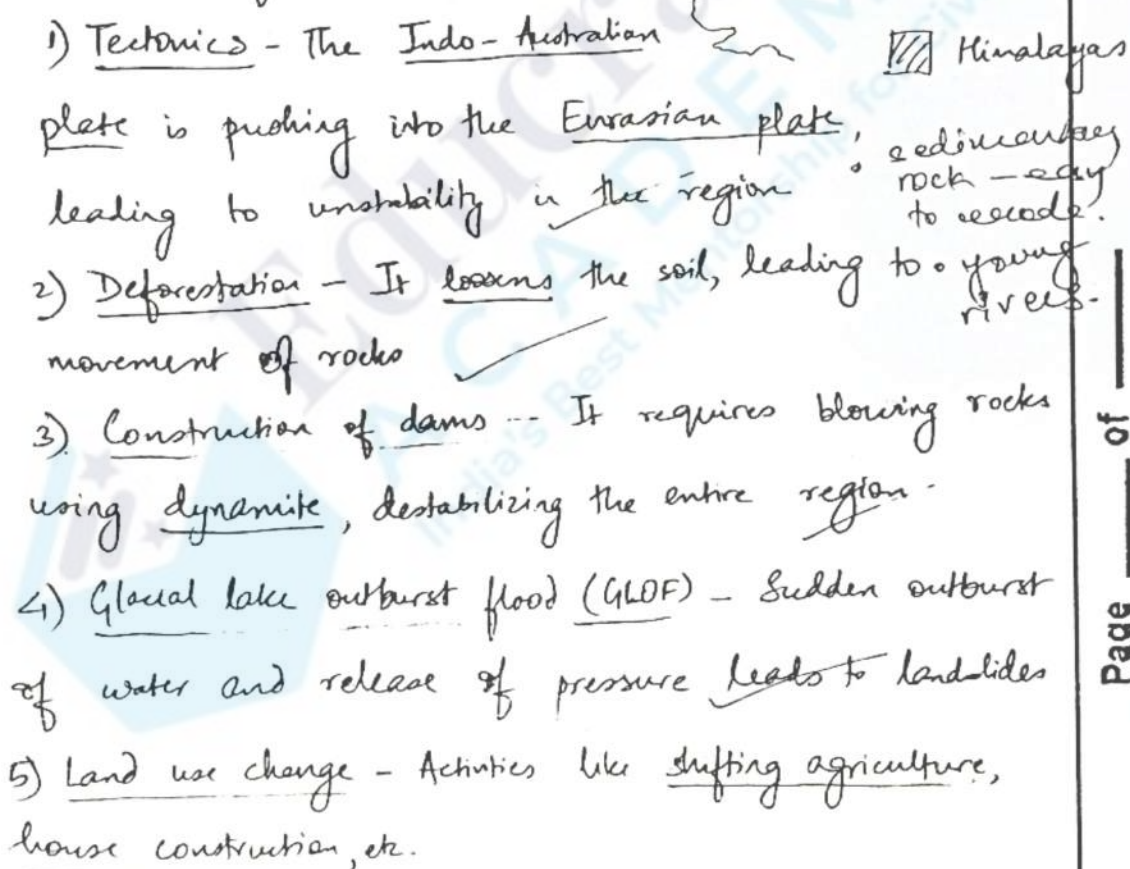 1) Tectonics - The Indo-Australian
Himalayas
plate is pushing into the Eurasian plate,
leading to unstability in the region
• sedimentary
rock - easy
to erode.
• young
rivers.
2) Deforestation - It loosens the soil, leading to
movement of rocks
3) Construction of dams - It requires blowing rocks
using dynamite, destabilizing the entire region.
4) Glacial lake outburst flood (GLOF) - Sudden outburst
of water and release of pressure leads to landslides
5) Land use change - Activities like shifting agriculture,
house construction, etc.
Page of
Educr
ACADEM
India's Best Mentorship for Civ